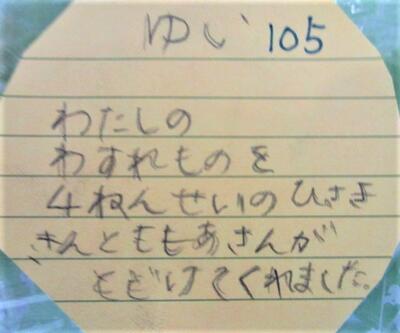 ゆい 105
わたしの
わすれものを
4ねんせいのひさき
さんとももあさんが
とどけてくれました。